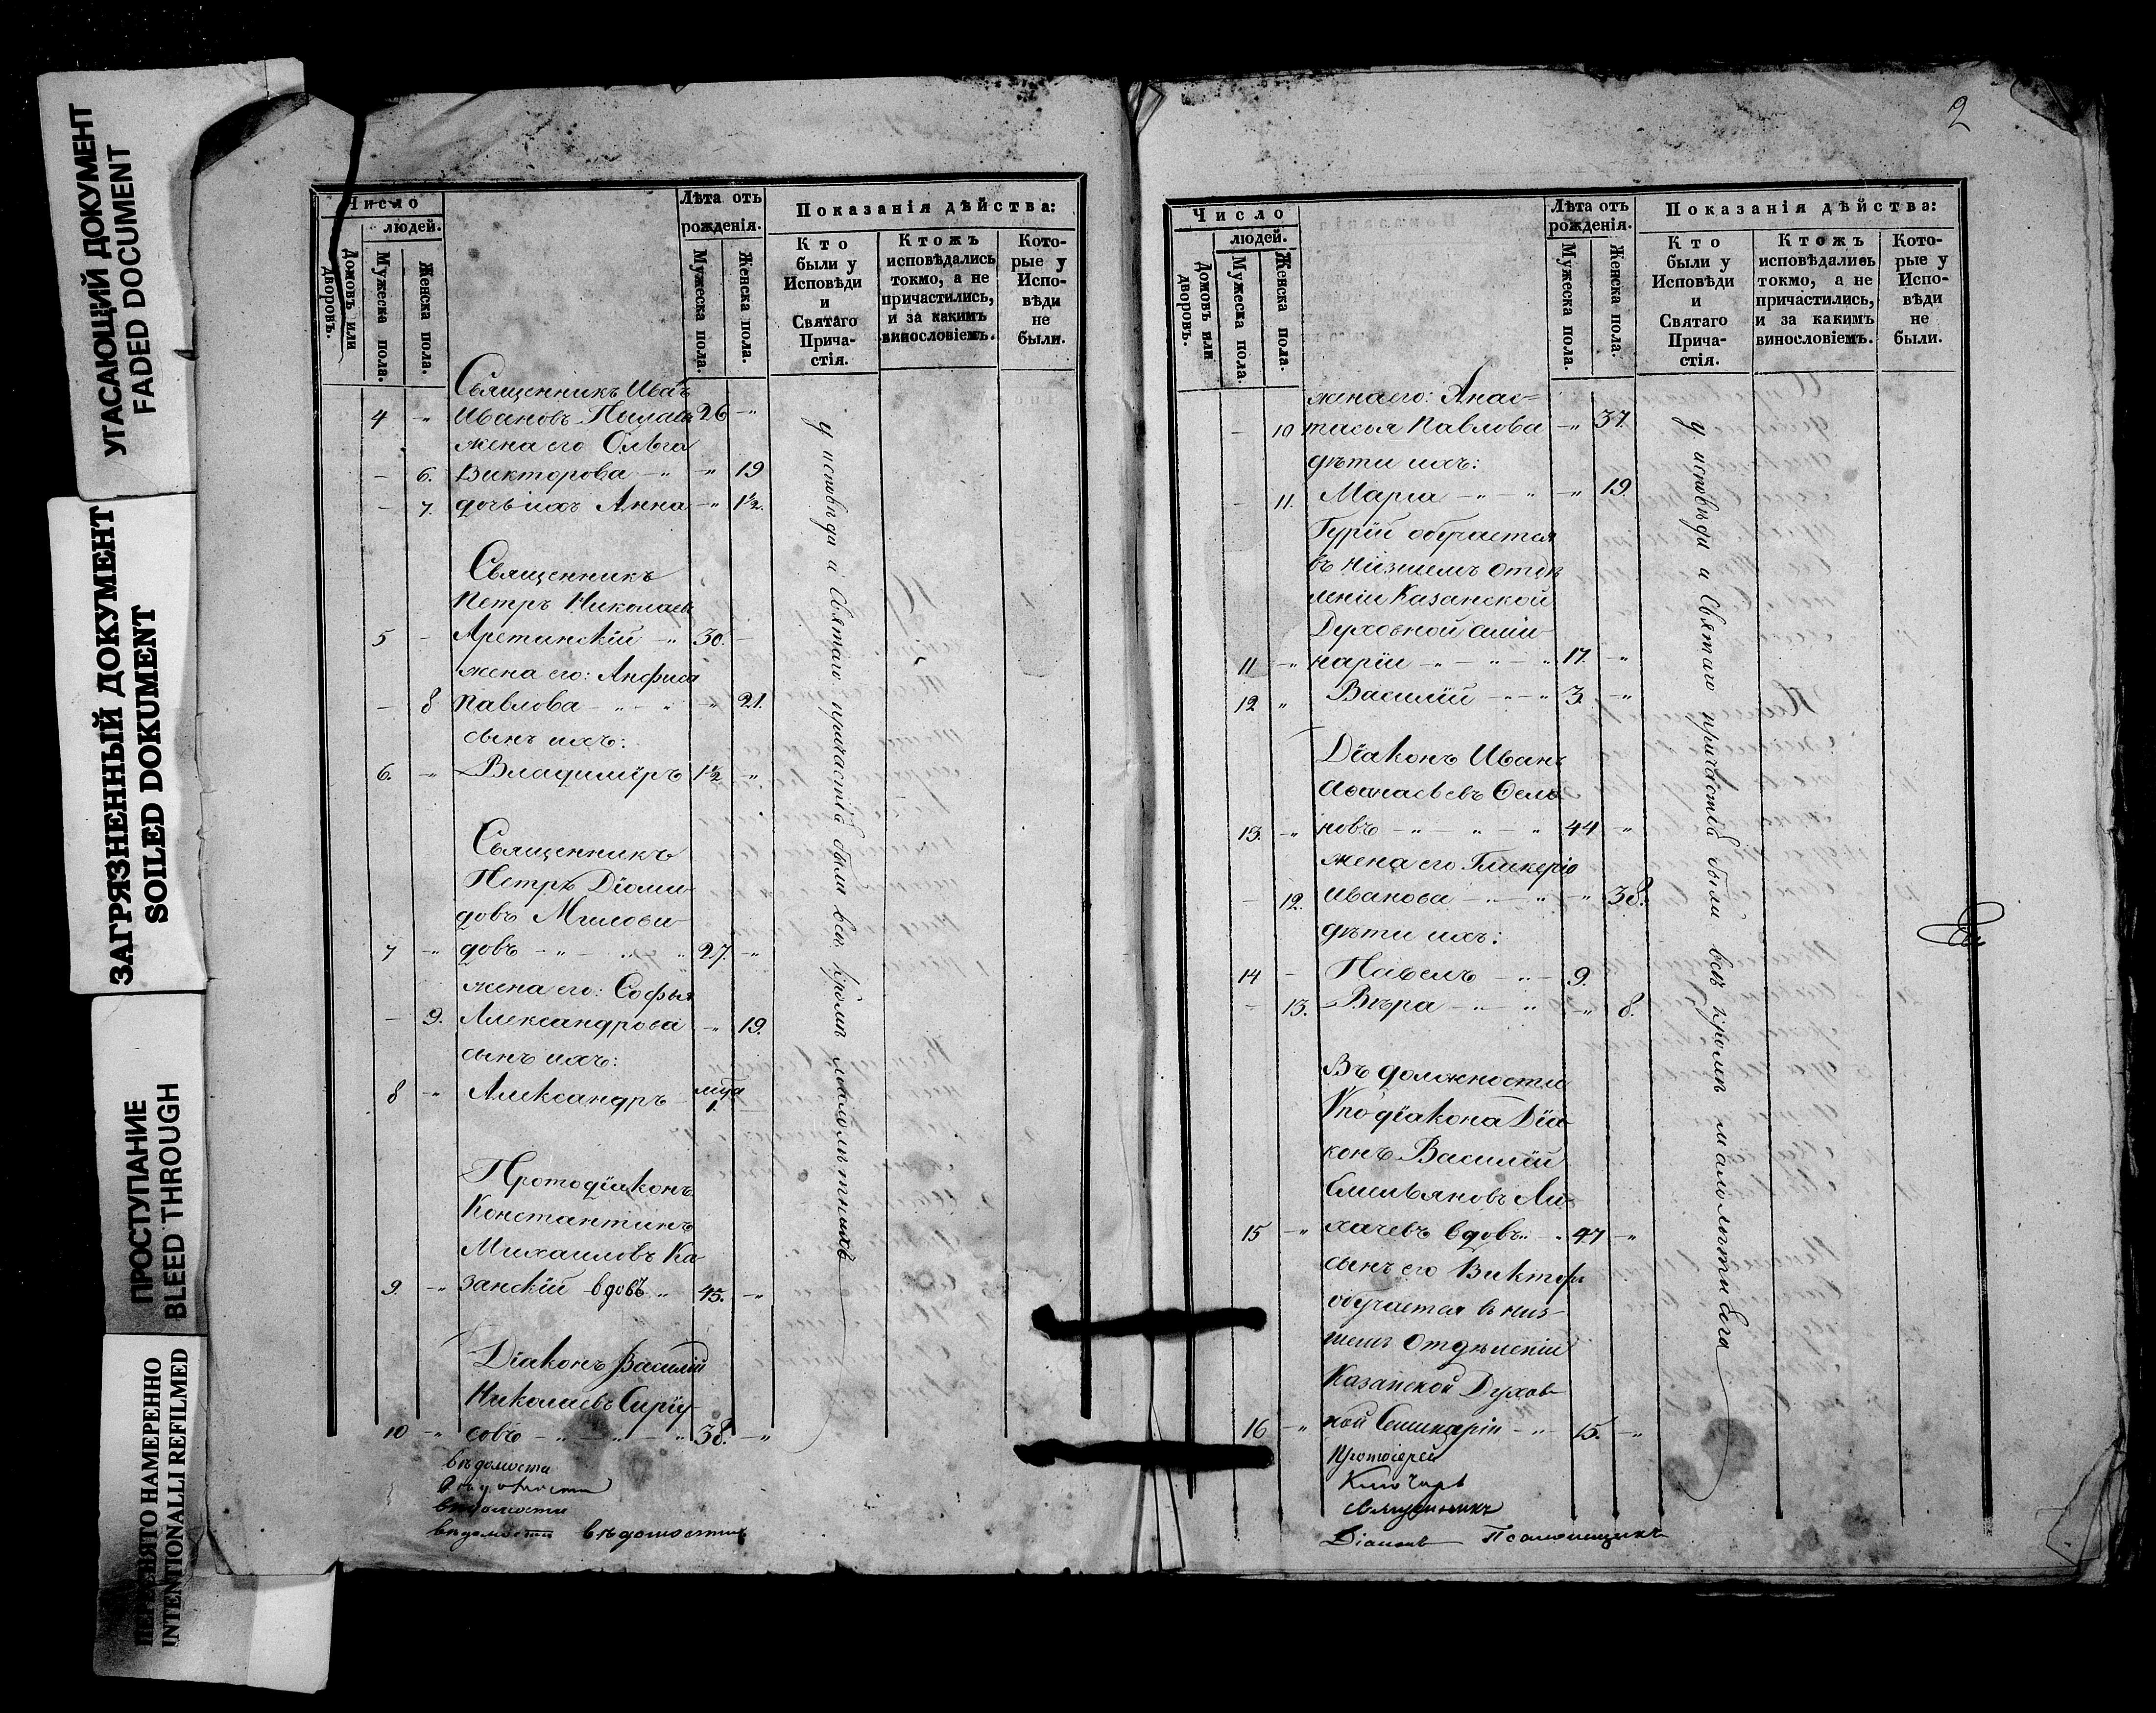 УГАСАЮЩИЙ ДОКУМЕНТ
FADED DOCUMENT
ЗАГРЯЗНЕННЫЙ ДОКУМЕНТ
SOILED DOKUMENT
ПРОСТУПАНИЕ
BLEED THROUGH
ПЕРЕСНЯТО НАМЕРЕННО
INTENTIONALLI REFILMED
Число
людей.
Домовъ или дворовъ.
Мужеска пола.
Женска пола.
Лѣта отъ рожденія.
Мужеска пола.
Женска пола.
Показанія дѣйства:
Кто были у Исповѣди и Святаго Прича-стія.
Ктожъ исповѣдались токмо, а не причастились, и за какимъ винословіемъ.
Кото-рые у Испо-вѣди не были.
Священникъ Иванъ
4 " Ивановъ 26 "
жена его Ольга
- 6. Викторова - " - " 19
- 7. дочь ихъ Анна - " 1½.
Священникъ
Петръ Николаевъ
5 - Аретинскій - " 30. -
жена его: Анфиса
- 8 Павлова - " - " - " 21.
сынъ ихъ:
6. - " Владиміръ 1½ - "
Священникъ
Петръ Діоми-
довъ Милови-
7 - " довъ - " - " - " 27. - "
жена его: Софья
- 9. Александрова - " 19.
сынъ ихъ:
8 - " Александръ - 1.
Протодіаконъ
Константинъ
Михаиловъ Ка-
9. - " занскій вдовъ " 45. - "
Діаконъ Василій
Николаевъ Сирiу-
10 - " совъ - " - " - " 38. - "
вѣдомости
вѣдомости
вѣдомости
вѣдомости вѣдомостиъ
у исповѣди и Святаго причастія были всѣ кромѣ малолѣтнихъ
2
Число
людей.
Домовъ или дворовъ.
Мужеска пола.
Женска пола.
Лѣта отъ рожденія.
Мужеска пола.
Женска пола.
Показанія дѣйства:
Кто были у Исповѣди и Святаго Прича-стія.
Ктожъ исповѣдались токмо, а не причастились, и за какимъ винословіемъ.
Кото-рые у Испо-вѣди не были.
жена его: Анас-
- 10 тасья Павлова - " 37.
дѣти ихъ:
- 11. Марія - " - " - " 19.
Гурій обучается
въ низшемъ отдѣ
леніи Казанской
Духовной Семи-
11 - " наріи - " - " - " 17. - "
12 " Василій - " - " 3. - "
Діаконъ Иванъ
Аѳанасьевъ Ѳели-
13. - " новъ - " - " - " 44 - "
жена его Гликерія
- 12. Иванова - " - " - " 38.
дѣти ихъ:
14 - Павелъ - " - 9.
- 13. Вѣра - " - " - " 8.
Въ должности
Уподіакона Діа-
конъ Василій
Емильяновъ Ли-
15 - " хачевъ вдовъ " . 47 - "
сынъ его Викторъ
обучается въ низ-
шемъ Отдѣленіи
Казанской Духов-
16 - " ной Семинаріи - " - 15. - "
Протоіерей
Ключарь
Священникъ
Діаконъ Псаломщикъ
у исповѣди и Святаго причастія были всѣ кромѣ